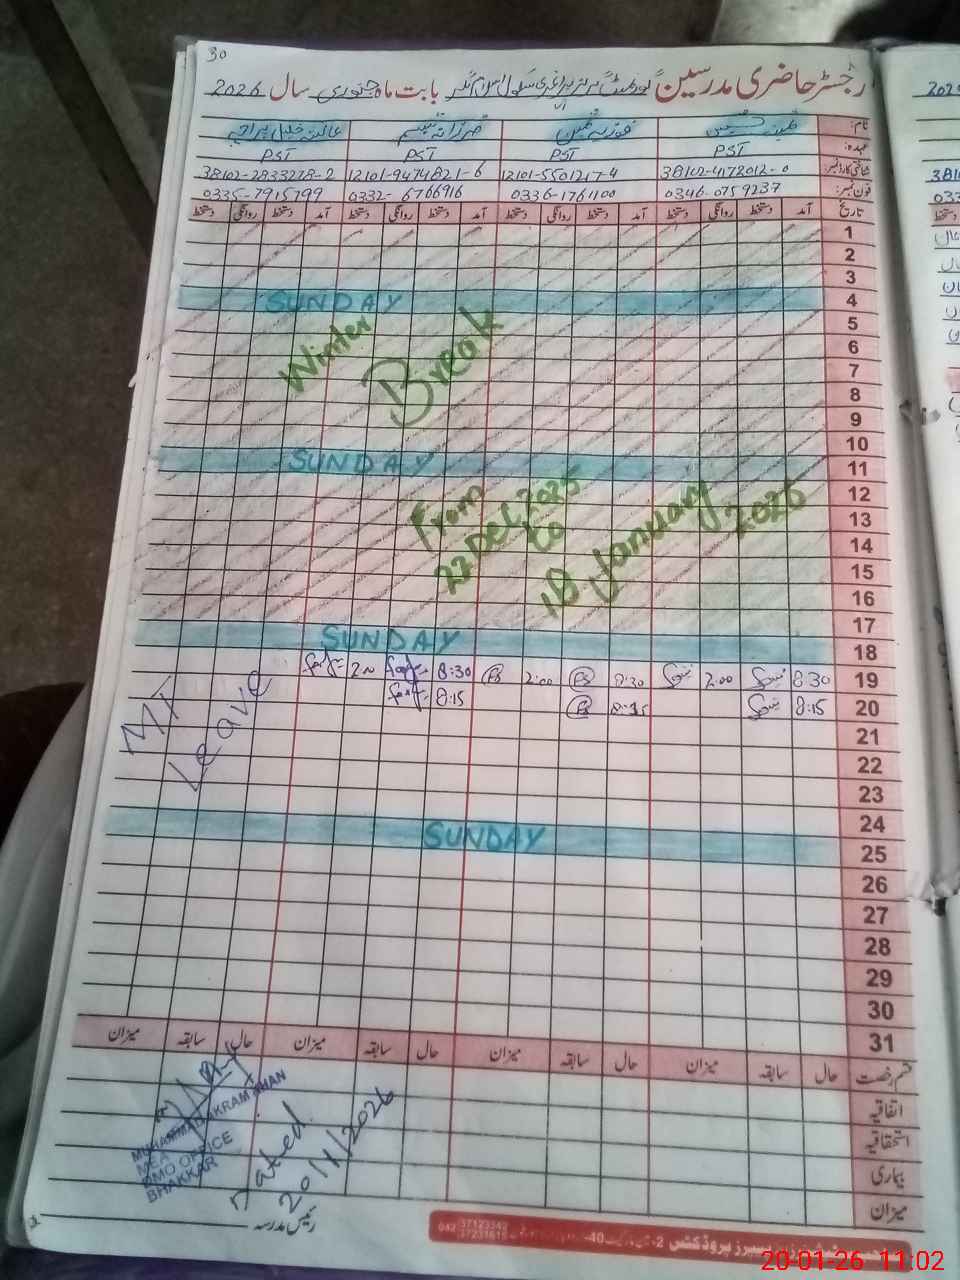 30
رجسٹر حاضری مدرسین گورنمنٹ گرلز پرائمری سکول اسلام نگر بابت ماہ جنوری سال 2026
نام:
عہدہ: PST PST PST PST
شناختی کارڈ نمبر: 38102-4172012-0 12101-5501217-4 12101-9474821-6 38102-2833278-2
فون نمبر: 0346-0759237 0336-1761100 0332-6766916 0335-7915799
تاریخ آمد دستخط روانگی دستخط آمد دستخط روانگی دستخط آمد دستخط روانگی دستخط آمد دستخط روانگی دستخط
1
2
3
4 SUNDAY
5
6
7
8
9
10
11 SUNDAY
12
13
14
15
16
17
18 SUNDAY
Winter Break
From 22 Dec, 2025 to 18 January 2026
19 8:30 2:00 8:30 2:00 8:30 2:00
20 8:15 8:15 8:15
MT Leave
21
22
23
24
25 SUNDAY
26
27
28
29
30
31
قسم رخصت حال سابقہ میزان حال سابقہ میزان حال سابقہ میزان حال سابقہ میزان
اتفاقیہ
استحقاقیہ
بیماری
میزان
MUHAMMAD AKRAM KHAN
MEA
DMO OFFICE
BHAKKAR
Dated.
20/1/2026
رئیس مدرسہ
042 37123342
20-01-26 11:02